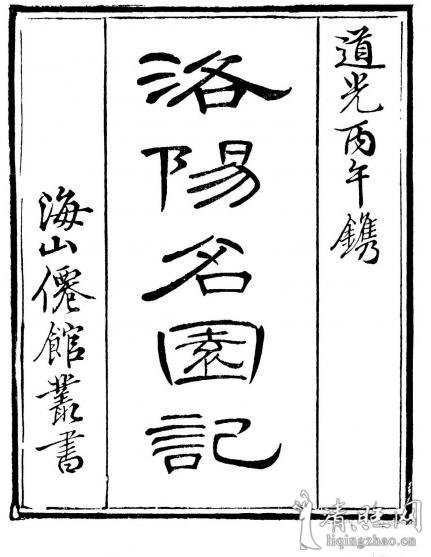 道光丙午鐫
洛陽名園記
海山僊館叢書
liqingzhao.com